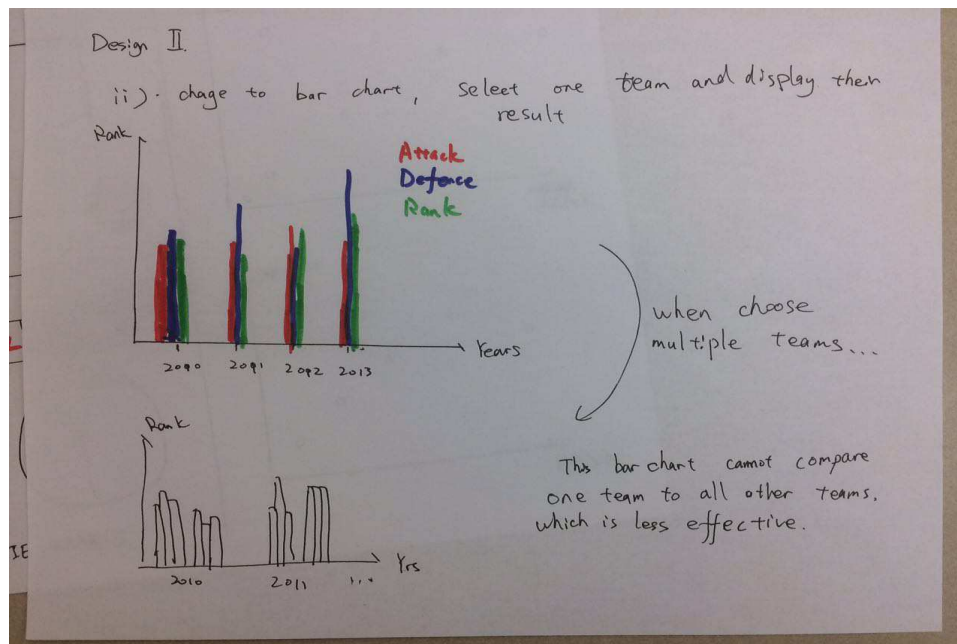 Design II.
ii). chage to bar chart, select one team and display then
result
Rank
Attack
Defence
Rank
2090 2091 2092 2013 ...
Years
when choose
multiple teams...
Rank
2010 2011 ...
Yrs
This bar chart cannot compare
one team to all other teams,
which is less effective.
IE